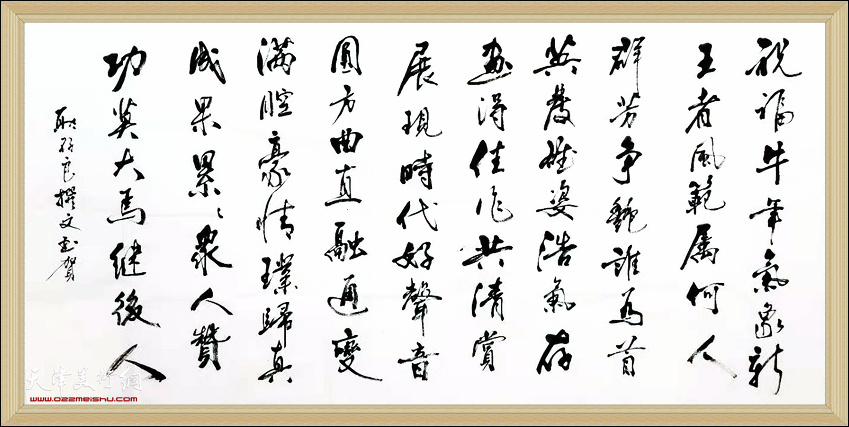 祝福牛年氣象新
王者風範属何人
群芳争艶誰為首
英發雄姿浩氣存
畫得佳作共清賞
展現時代好聲音
圓方曲直融通變
滿腔豪情璞歸真
成果累々衆人贊
功莫大焉繼後人
撰文書賀
天津美術網
www.022meishu.com